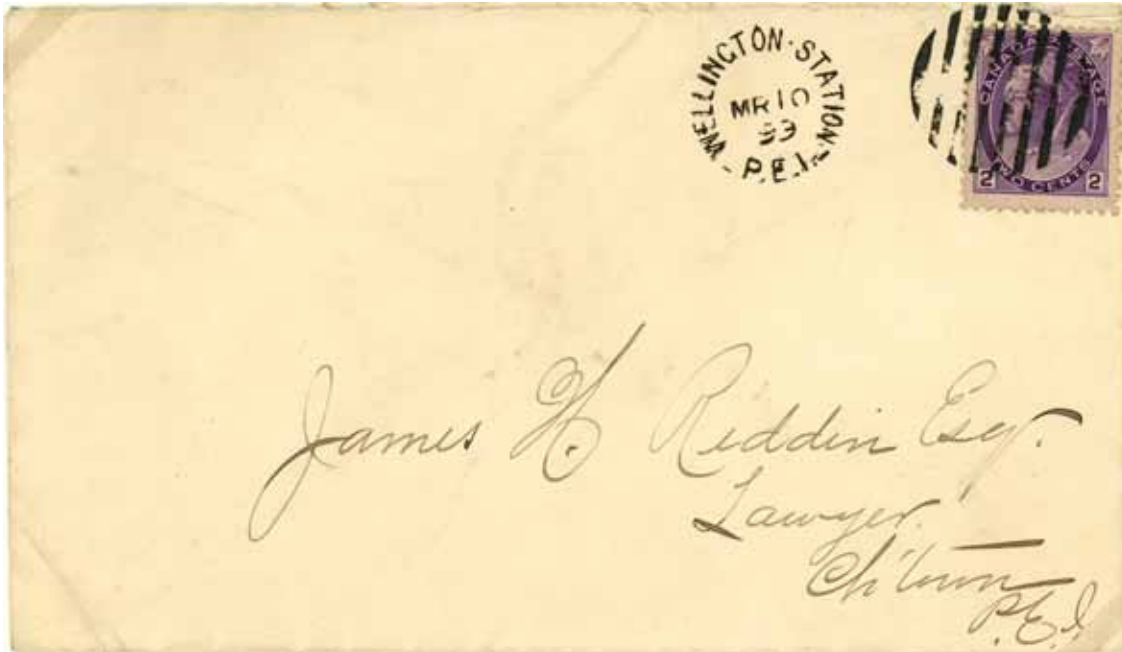 WELLINGTON·STATION
MR 10
99
P.E.I.
CANADA POSTAGE
TWO CENTS
2 2
James H. Reddin Esq.
Lawyer
Ch'town
P.E.I.